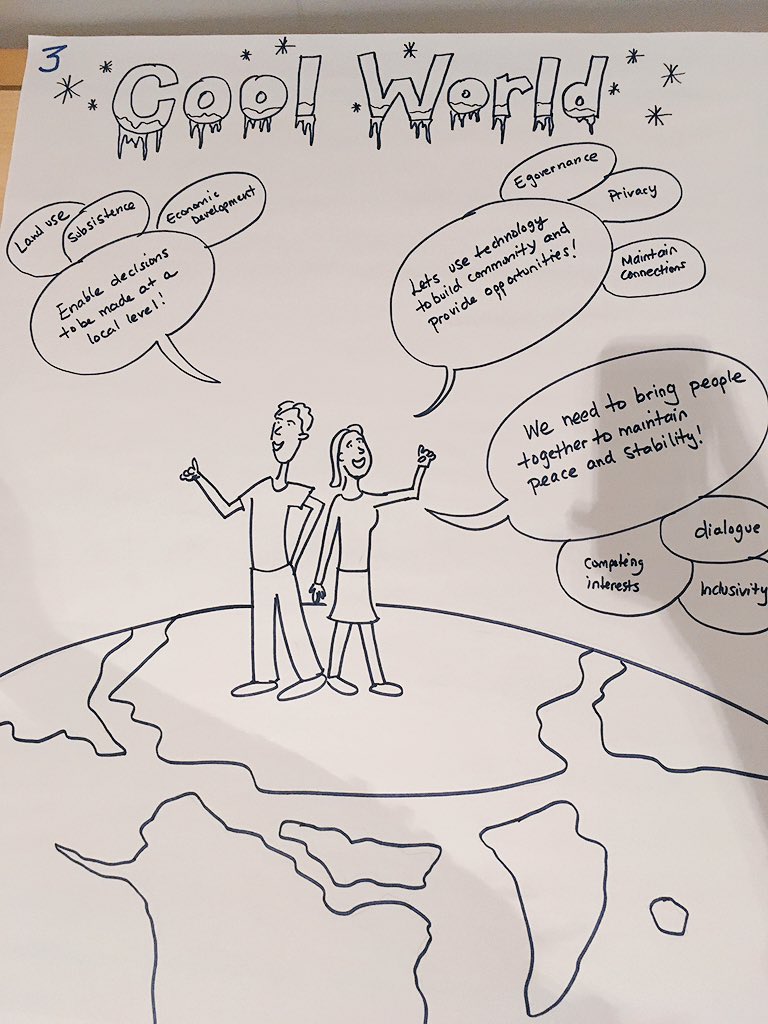 3
Cool World
Land use
Subsistence
Economic
Development
Enable decisions
to be made at a
local level!
Egovernance
Privacy
Maintain
Connections
Lets use technology
to build community and
provide opportunities!
We need to bring people
together to maintain
peace and stability!
dialogue
Competing
interests
Inclusivity